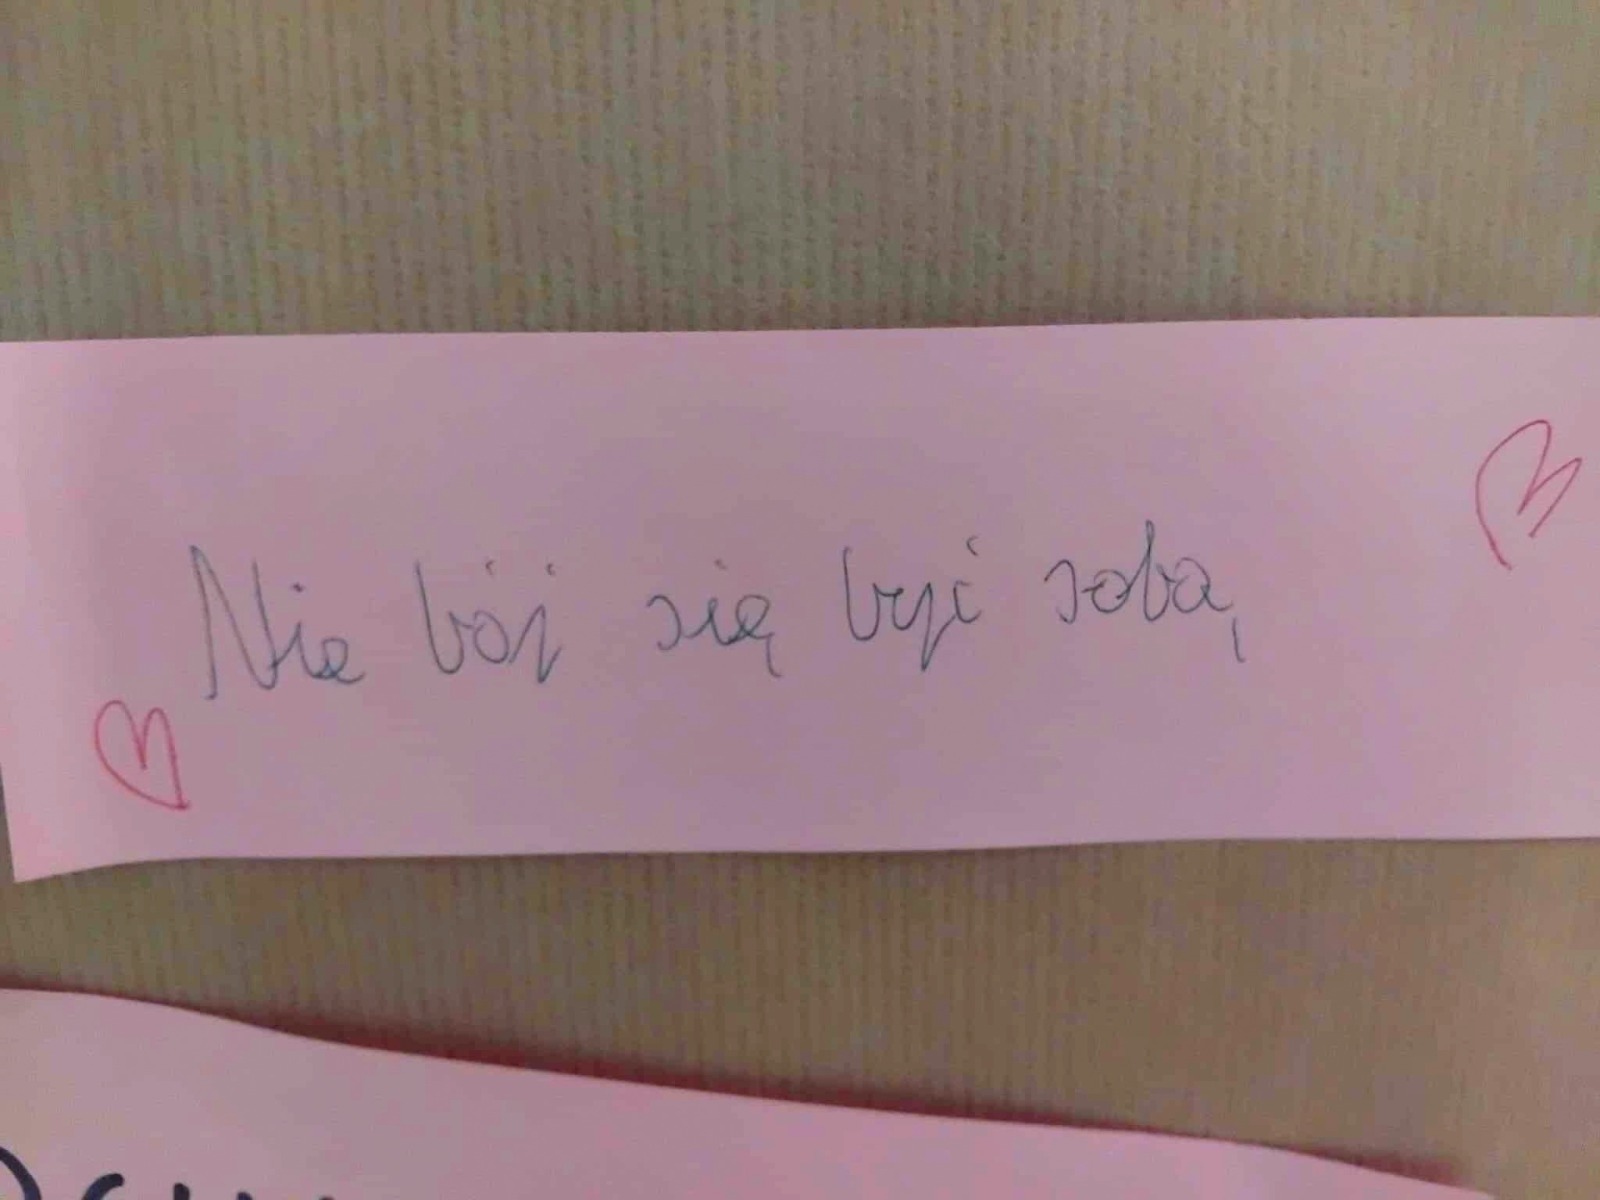 Nie bój się być sobą